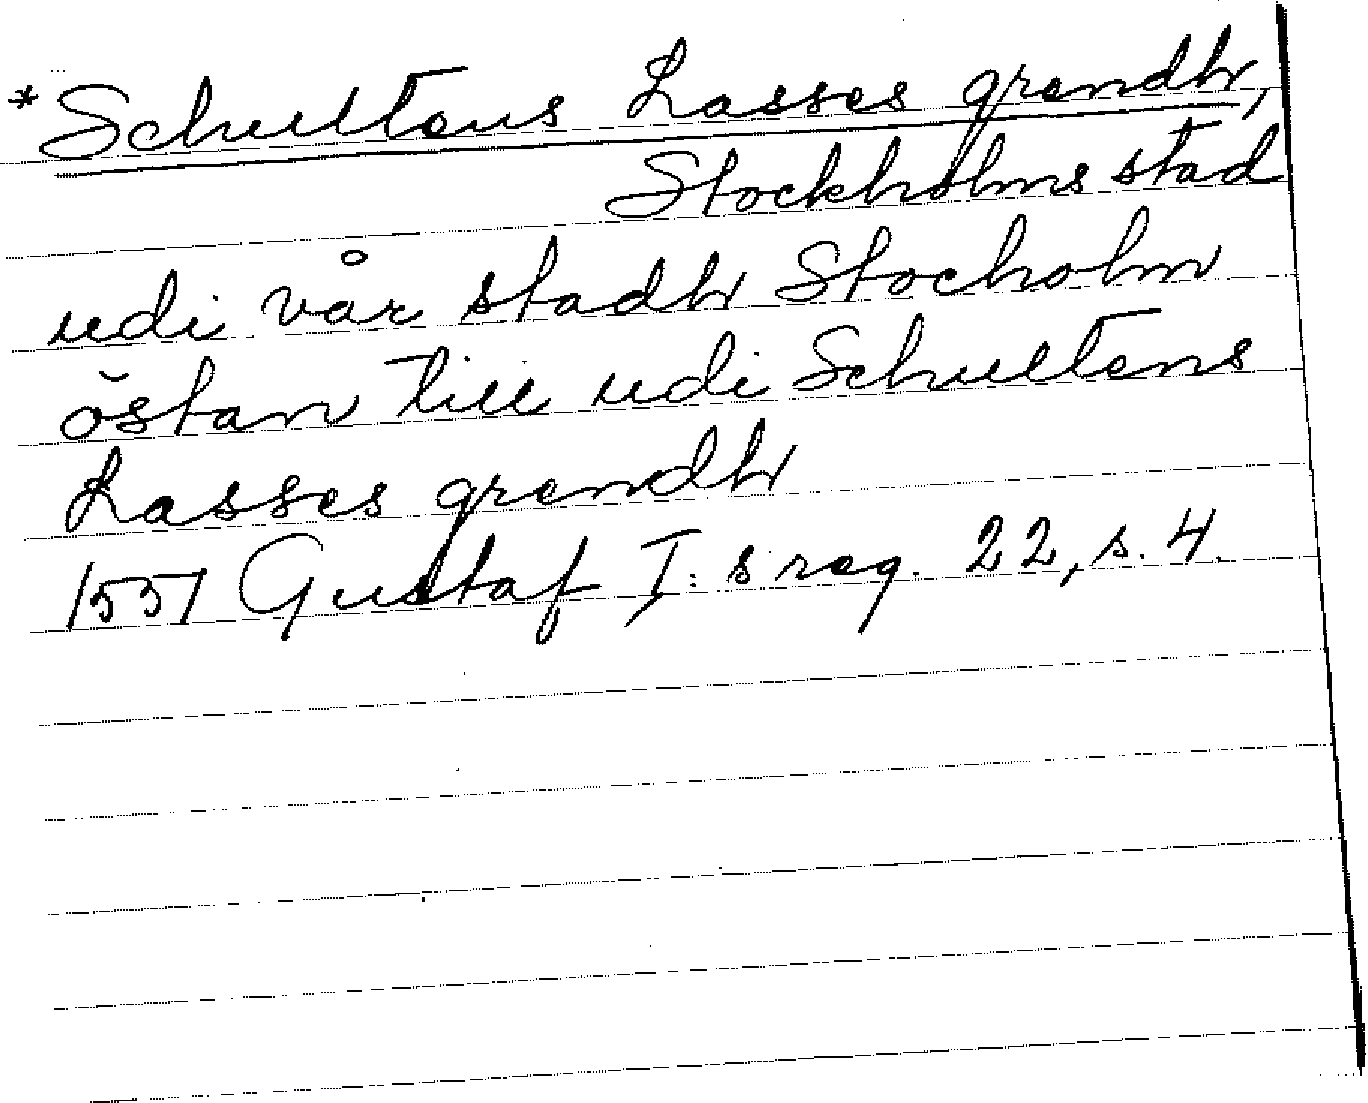 * Schultens Lasses grendh,
Stockholms stad
udi vår stadh Stocholm
östan till udi Schultens
Lasses grendh
1551 Gustaf I:s reg. 22, s. 4.